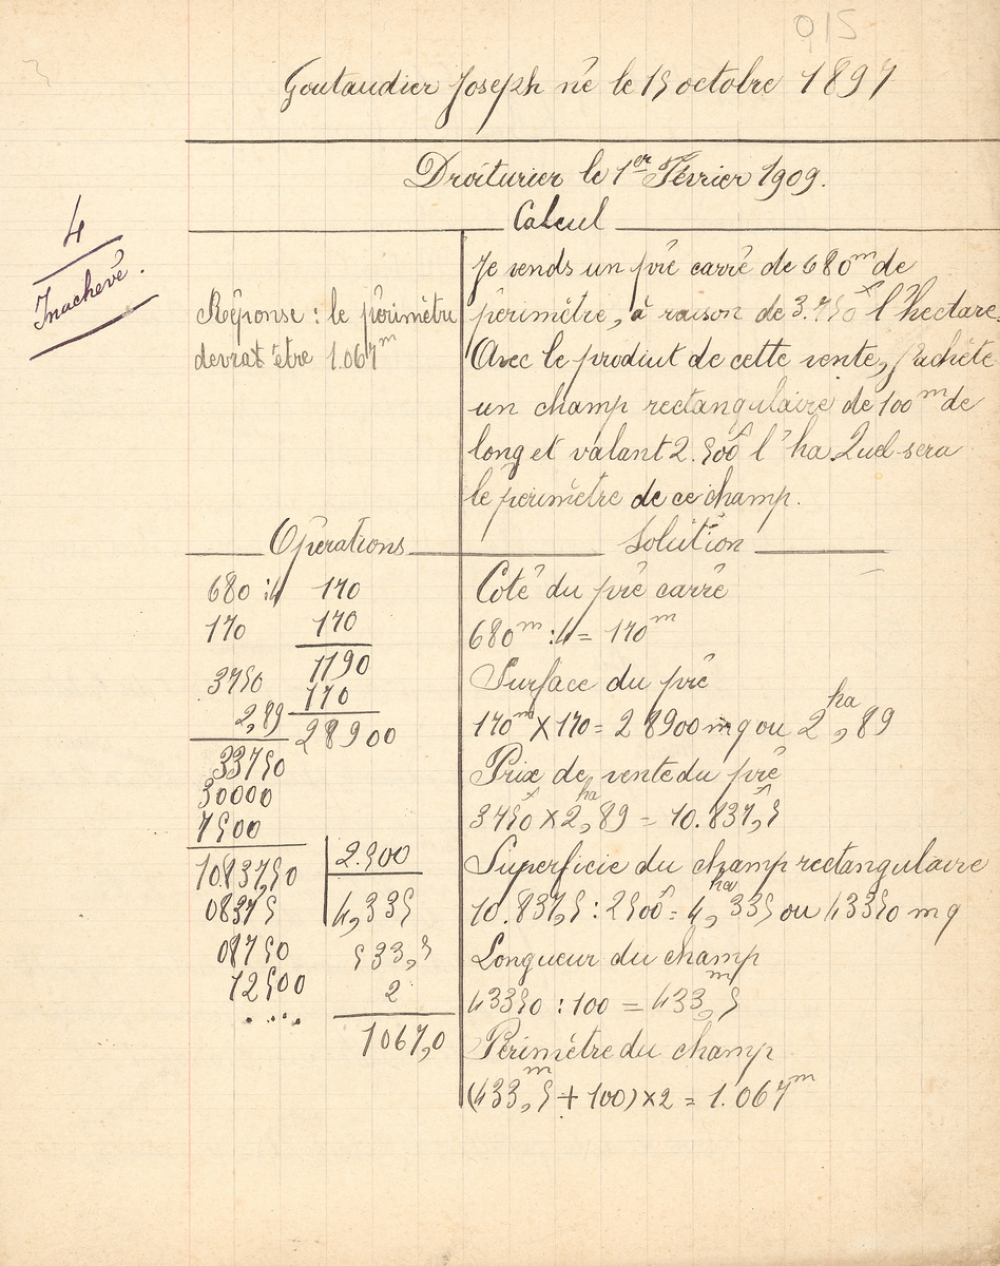 015
Goutaudier Joseph né le 15 octobre 1897
Droiturier le 1er Février 1909.
Calcul
4
Inachevé.
Réponse : le périmètre
devrat être 1.067m
Je vends un pré carré de 680m de
périmètre, à raison de 3.750f l'hectare.
Avec le produit de cette vente, j'achète
un champ rectangulaire de 100m de
long et valant 2.500f l'ha. Quel sera
le périmètre de ce champ.
Opérations
680 :4 170
170 170
1190
3750 170
2,89 28900
33750
30000
7500
10837,50 2.500
08375 4,335
08750 533,5
12500 2
.... 1067,0
Solution
Coté du pré carré
680m :4= 170m
Surface du pré
170m X 170= 28900mq ou 2ha,89
Prix de vente du pré
3750f X 2ha,89 = 10.837f,5
Superficie du champ rectangulaire
10.837,5 : 2500f = 4ha,335 ou 43350 mq
Longueur du champ
43350 : 100 = 433m,5
Périmètre du champ
(433m,5 + 100) x 2 = 1.067m